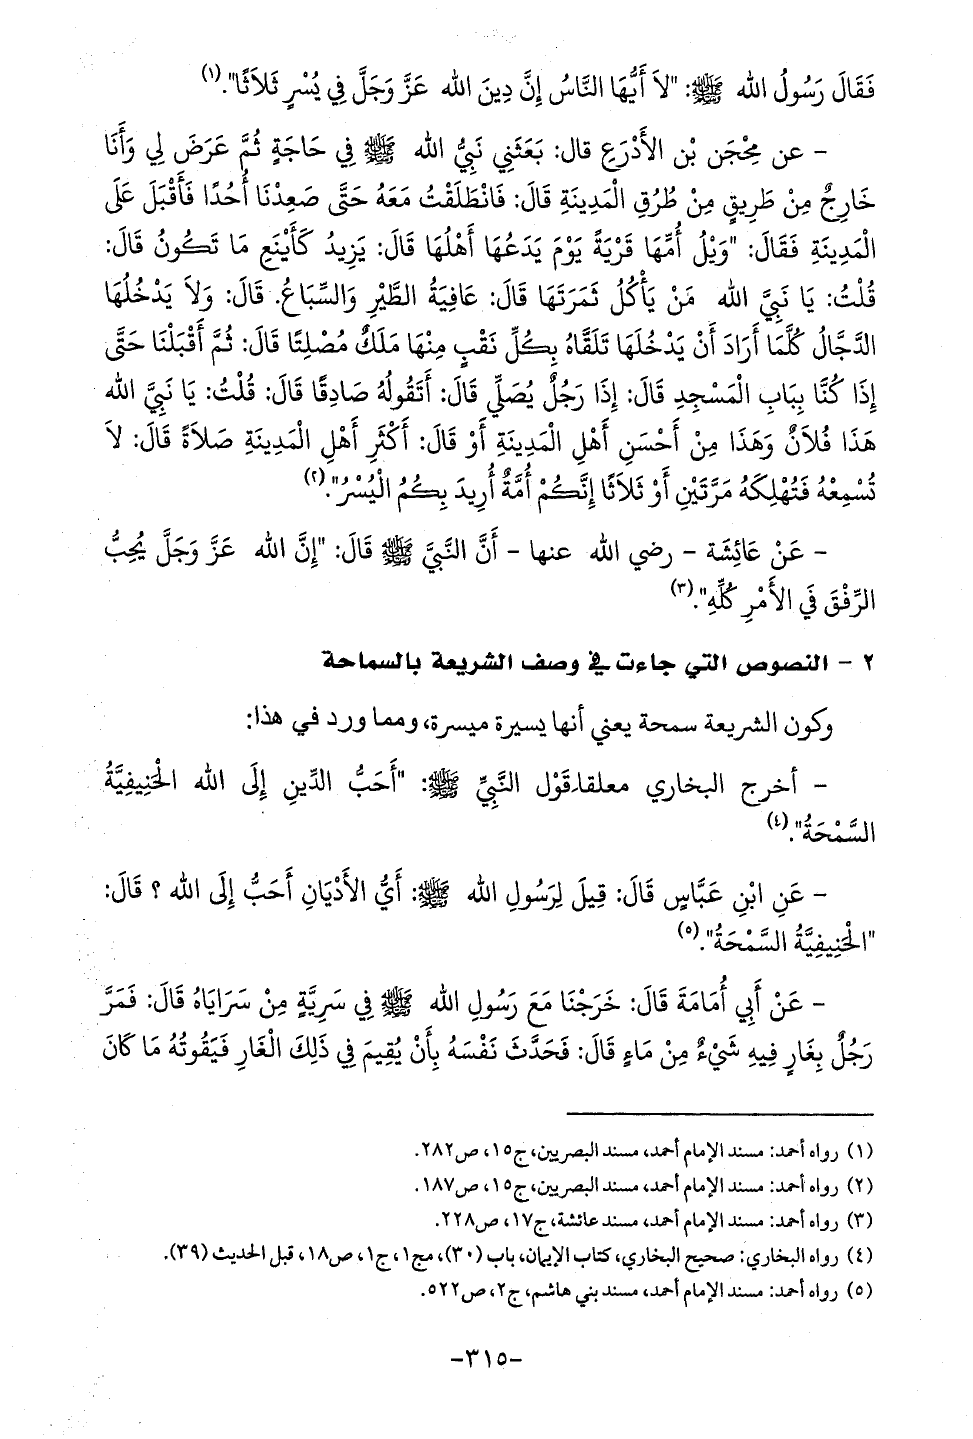 فَقَالَ رَسُولُ الله ﷺ: "لاَ أَيُّهَا النَّاسُ إِنَّ دِينَ الله عَزَّ وَجَلَّ فِي يُسْرٍ ثَلاَثًا".(١)
- عن مِحْجَن بْن الأَدْرَعِ قال: بَعَثَنِي نَبِيُّ الله ﷺ فِي حَاجَةٍ ثُمَّ عَرَضَ لِي وَأَنَا
خَارِجٌ مِنْ طَرِيقٍ مِنْ طُرُقِ الْمَدِينَةِ قَالَ: فَانْطَلَقْتُ مَعَهُ حَتَّى صَعِدْنَا أُحُدًا فَأَقْبَلَ عَلَى
الْمَدِينَةِ فَقَالَ: "وَيْلُ أُمِّهَا قَرْيَةً يَوْمَ يَدَعُهَا أَهْلُهَا قَالَ: يَزِيدُ كَأَيْنَعِ مَا تَكُونُ قَالَ:
قُلْتُ: يَا نَبِيَّ الله مَنْ يَأْكُلُ ثَمَرَتَهَا قَالَ: عَافِيَةُ الطَّيْرِ وَالسِّبَاعُ. قَالَ: وَلاَ يَدْخُلُهَا
الدَّجَّالُ كُلَّمَا أَرَادَ أَنْ يَدْخُلَهَا تَلَقَّاهُ بِكُلِّ نَقْبٍ مِنْهَا مَلَكٌ مُصْلِتًا قَالَ: ثُمَّ أَقْبَلْنَا حَتَّى
إِذَا كُنَّا بِبَابِ الْمَسْجِدِ قَالَ: إِذَا رَجُلٌ يُصَلِّي قَالَ: أَتَقُولُهُ صَادِقًا قَالَ: قُلْتُ: يَا نَبِيَّ الله
هَذَا فُلاَنٌ وَهَذَا مِنْ أَحْسَنِ أَهْلِ الْمَدِينَةِ أَوْ قَالَ: أَكْثَرِ أَهْلِ الْمَدِينَةِ صَلاَةً قَالَ: لاَ
تُسْمِعْهُ فَتُهْلِكَهُ مَرَّتَيْنِ أَوْ ثَلاَثًا إِنَّكُمْ أُمَّةٌ أُرِيدَ بِكُمُ الْيُسْرُ".(٢)
- عَنْ عَائِشَة - رضي الله عنها - أَنَّ النَّبِيَّ ﷺ قَالَ: "إِنَّ الله عَزَّ وَجَلَّ يُحِبُّ
الرِّفْقَ فِي الأَمْرِ كُلِّهِ".(٣)
٢ - النصوص التي جاءت في وصف الشريعة بالسماحة
وكون الشريعة سمحة يعني أنها يسيرة ميسرة، ومما ورد في هذا:
- أخرج البخاري معلقا.قَوْل النَّبِيِّ ﷺ: "أَحَبُّ الدِّينِ إِلَى الله الحَنِيفِيَّةُ
السَّمْحَةُ".(٤)
- عَنِ ابْنِ عَبَّاسٍ قَالَ: قِيلَ لِرَسُولِ الله ﷺ: أَيُّ الأَدْيَانِ أَحَبُّ إِلَى الله ؟ قَالَ:
"الْحَنِيفِيَّةُ السَّمْحَةُ".(٥)
- عَنْ أَبِي أُمَامَةَ قَالَ: خَرَجْنَا مَعَ رَسُولِ الله ﷺ فِي سَرِيَّةٍ مِنْ سَرَايَاهُ قَالَ: فَمَرَّ
رَجُلٌ بِغَارٍ فِيهِ شَيْءٌ مِنْ مَاءٍ قَالَ: فَحَدَّثَ نَفْسَهُ بِأَنْ يُقِيمَ فِي ذَلِكَ الْغَارِ فَيَقُوتُهُ مَا كَانَ
(١) رواه أحمد: مسند الإمام أحمد، مسند البصريين، ج١٥، ص٢٨٢.
(٢) رواه أحمد: مسند الإمام أحمد، مسند البصريين، ج١٥، ص١٨٧.
(٣) رواه أحمد: مسند الإمام أحمد، مسند عائشة، ج١٧، ص٢٢٨.
(٤) رواه البخاري: صحيح البخاري، كتاب الإيمان، باب (٣٠)، مج١، ج١، ص١٨، قبل الحديث (٣٩).
(٥) رواه أحمد: مسند الإمام أحمد، مسند بني هاشم، ج٢، ص٥٢٢.
-٣١٥-